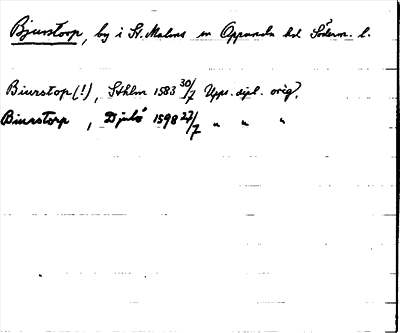 Bjurstorp, by i St. Malms sn Oppunda hd Söderm. l.
Biurstop (!), Sthlm 1583 30/7 Upps. dipl. orig.
Biurstorp, Djulö 1598 27/7 " " "